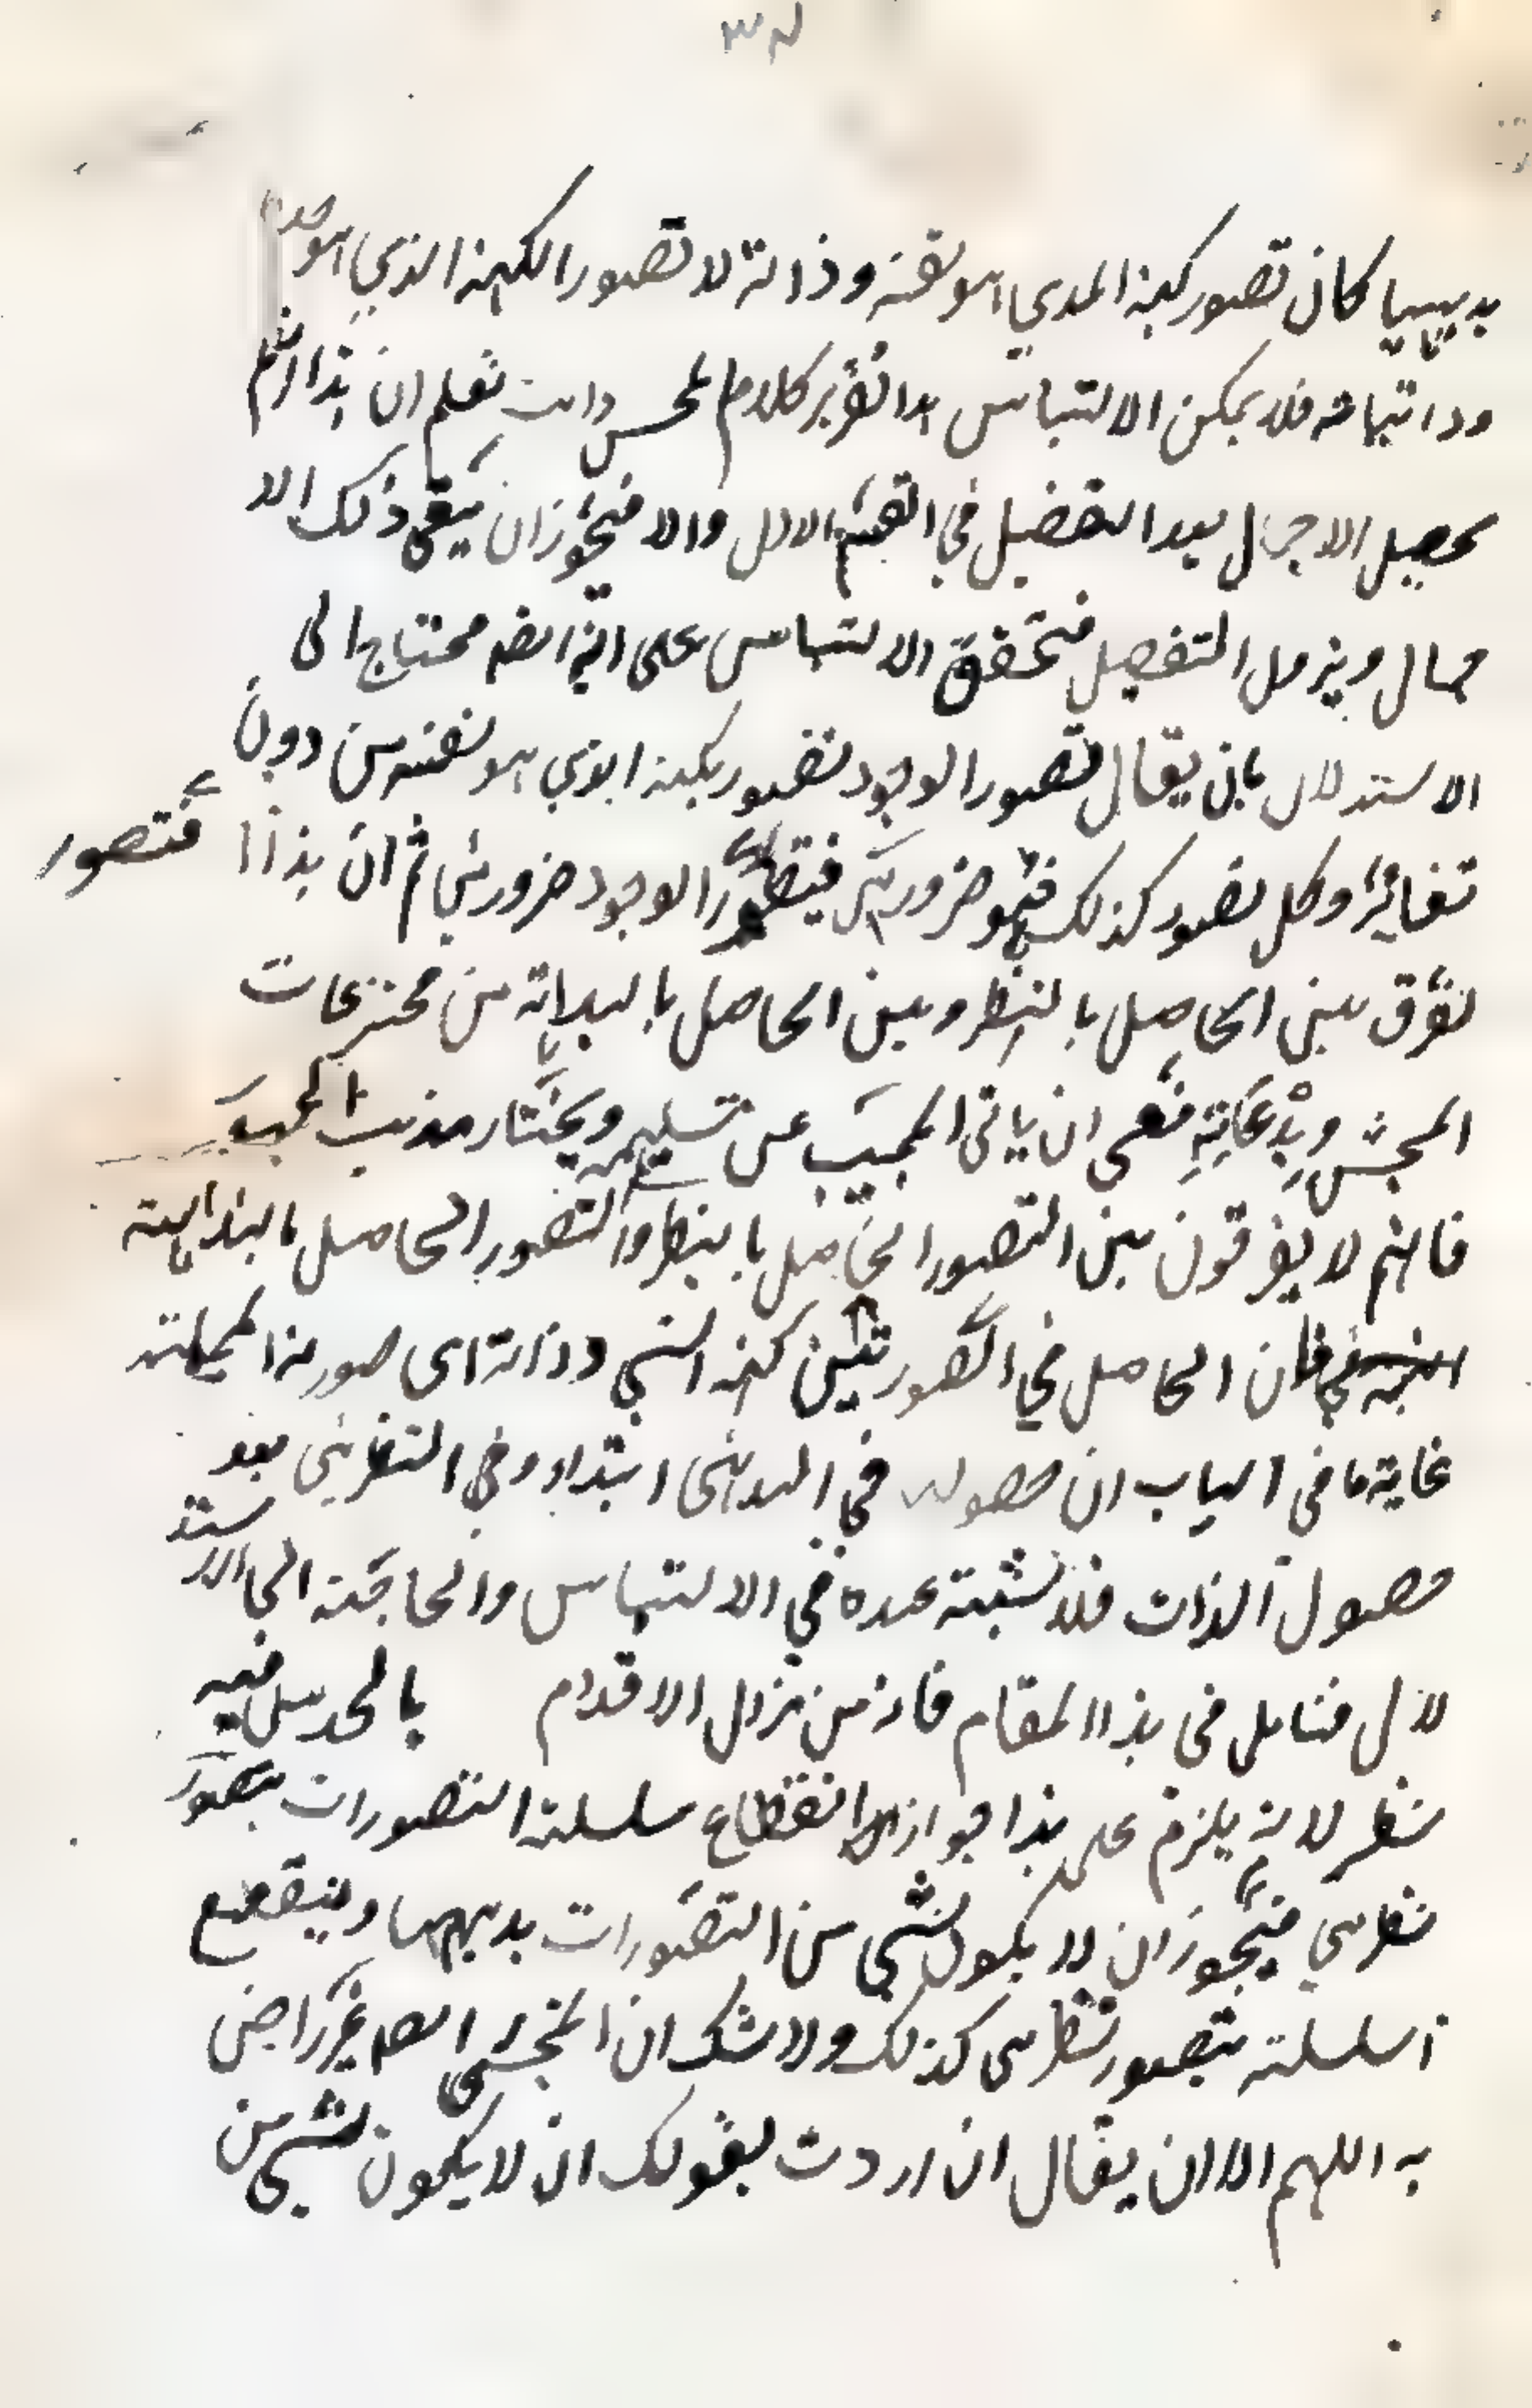 بديهيا كان تصور كنه المدي هو نفسه وذاته لا تصور الكنه الذي هو حده
وذاتياته فلا يمكن الالتباس هذا تقرير كلام المحشي وانت تعلم ان هذا انما
يحصل الاجمال بعد التفصيل في القسم الاول والا فيجوز ان يبقى ذلك الا
جمال ويزول التفصيل فتحقق الالتباس على انه ايضا محتاج الى
الاستدلال بان يقال تصور الوجود تصور بكنه الذي هو نفسه من دون
تغاير وكل تصور كذلك فهو ضروري فتصور الوجود ضروري ثم ان هذا ا
فتصور
لفرق بين الحاصل بالنظر وبين الحاصل بالبداهة من مخترعات
المحشي وبدعاته فعلى ان ياتى المجيب عن تسليمه ويختار مذهب
فانهم لا يفرقون بين التصور الحاصل بالنظر والتصور الحاصل بالبداهة
فان الحاصل في التصورتين كنه الشي وذاته اى صورته المجملة
غاية ما فى الباب ان حصوله في البديهى ابتداء وفي النظري بعد
حصول الذات فلا شبهة عنده في الالتباس والحاجة الى الاستد
لال فتامل فى هذا المقام فانه من مزال الاقدام بالحدس فيه
نظر لانه يلزم على هذا جواز انقطاع سلسلة التصورات بتصور
نظري فيجوز ان لا يكون شي من التصورات بديهيا وينقطع
السلسلة بتصور نظرى كذلك ولا شك ان المحشى ايضا غير راض
به اللهم الا ان يقال ان اردت بقولك ان لا يكون شي من